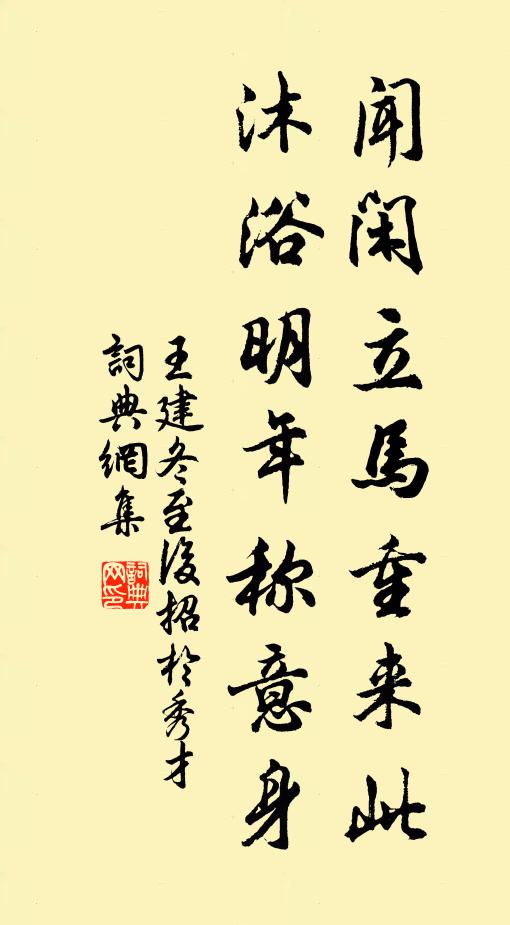 闻闲立馬重来此
沐浴明年称意身
王建冬至後招於秀才
詞典網集
詞典网印